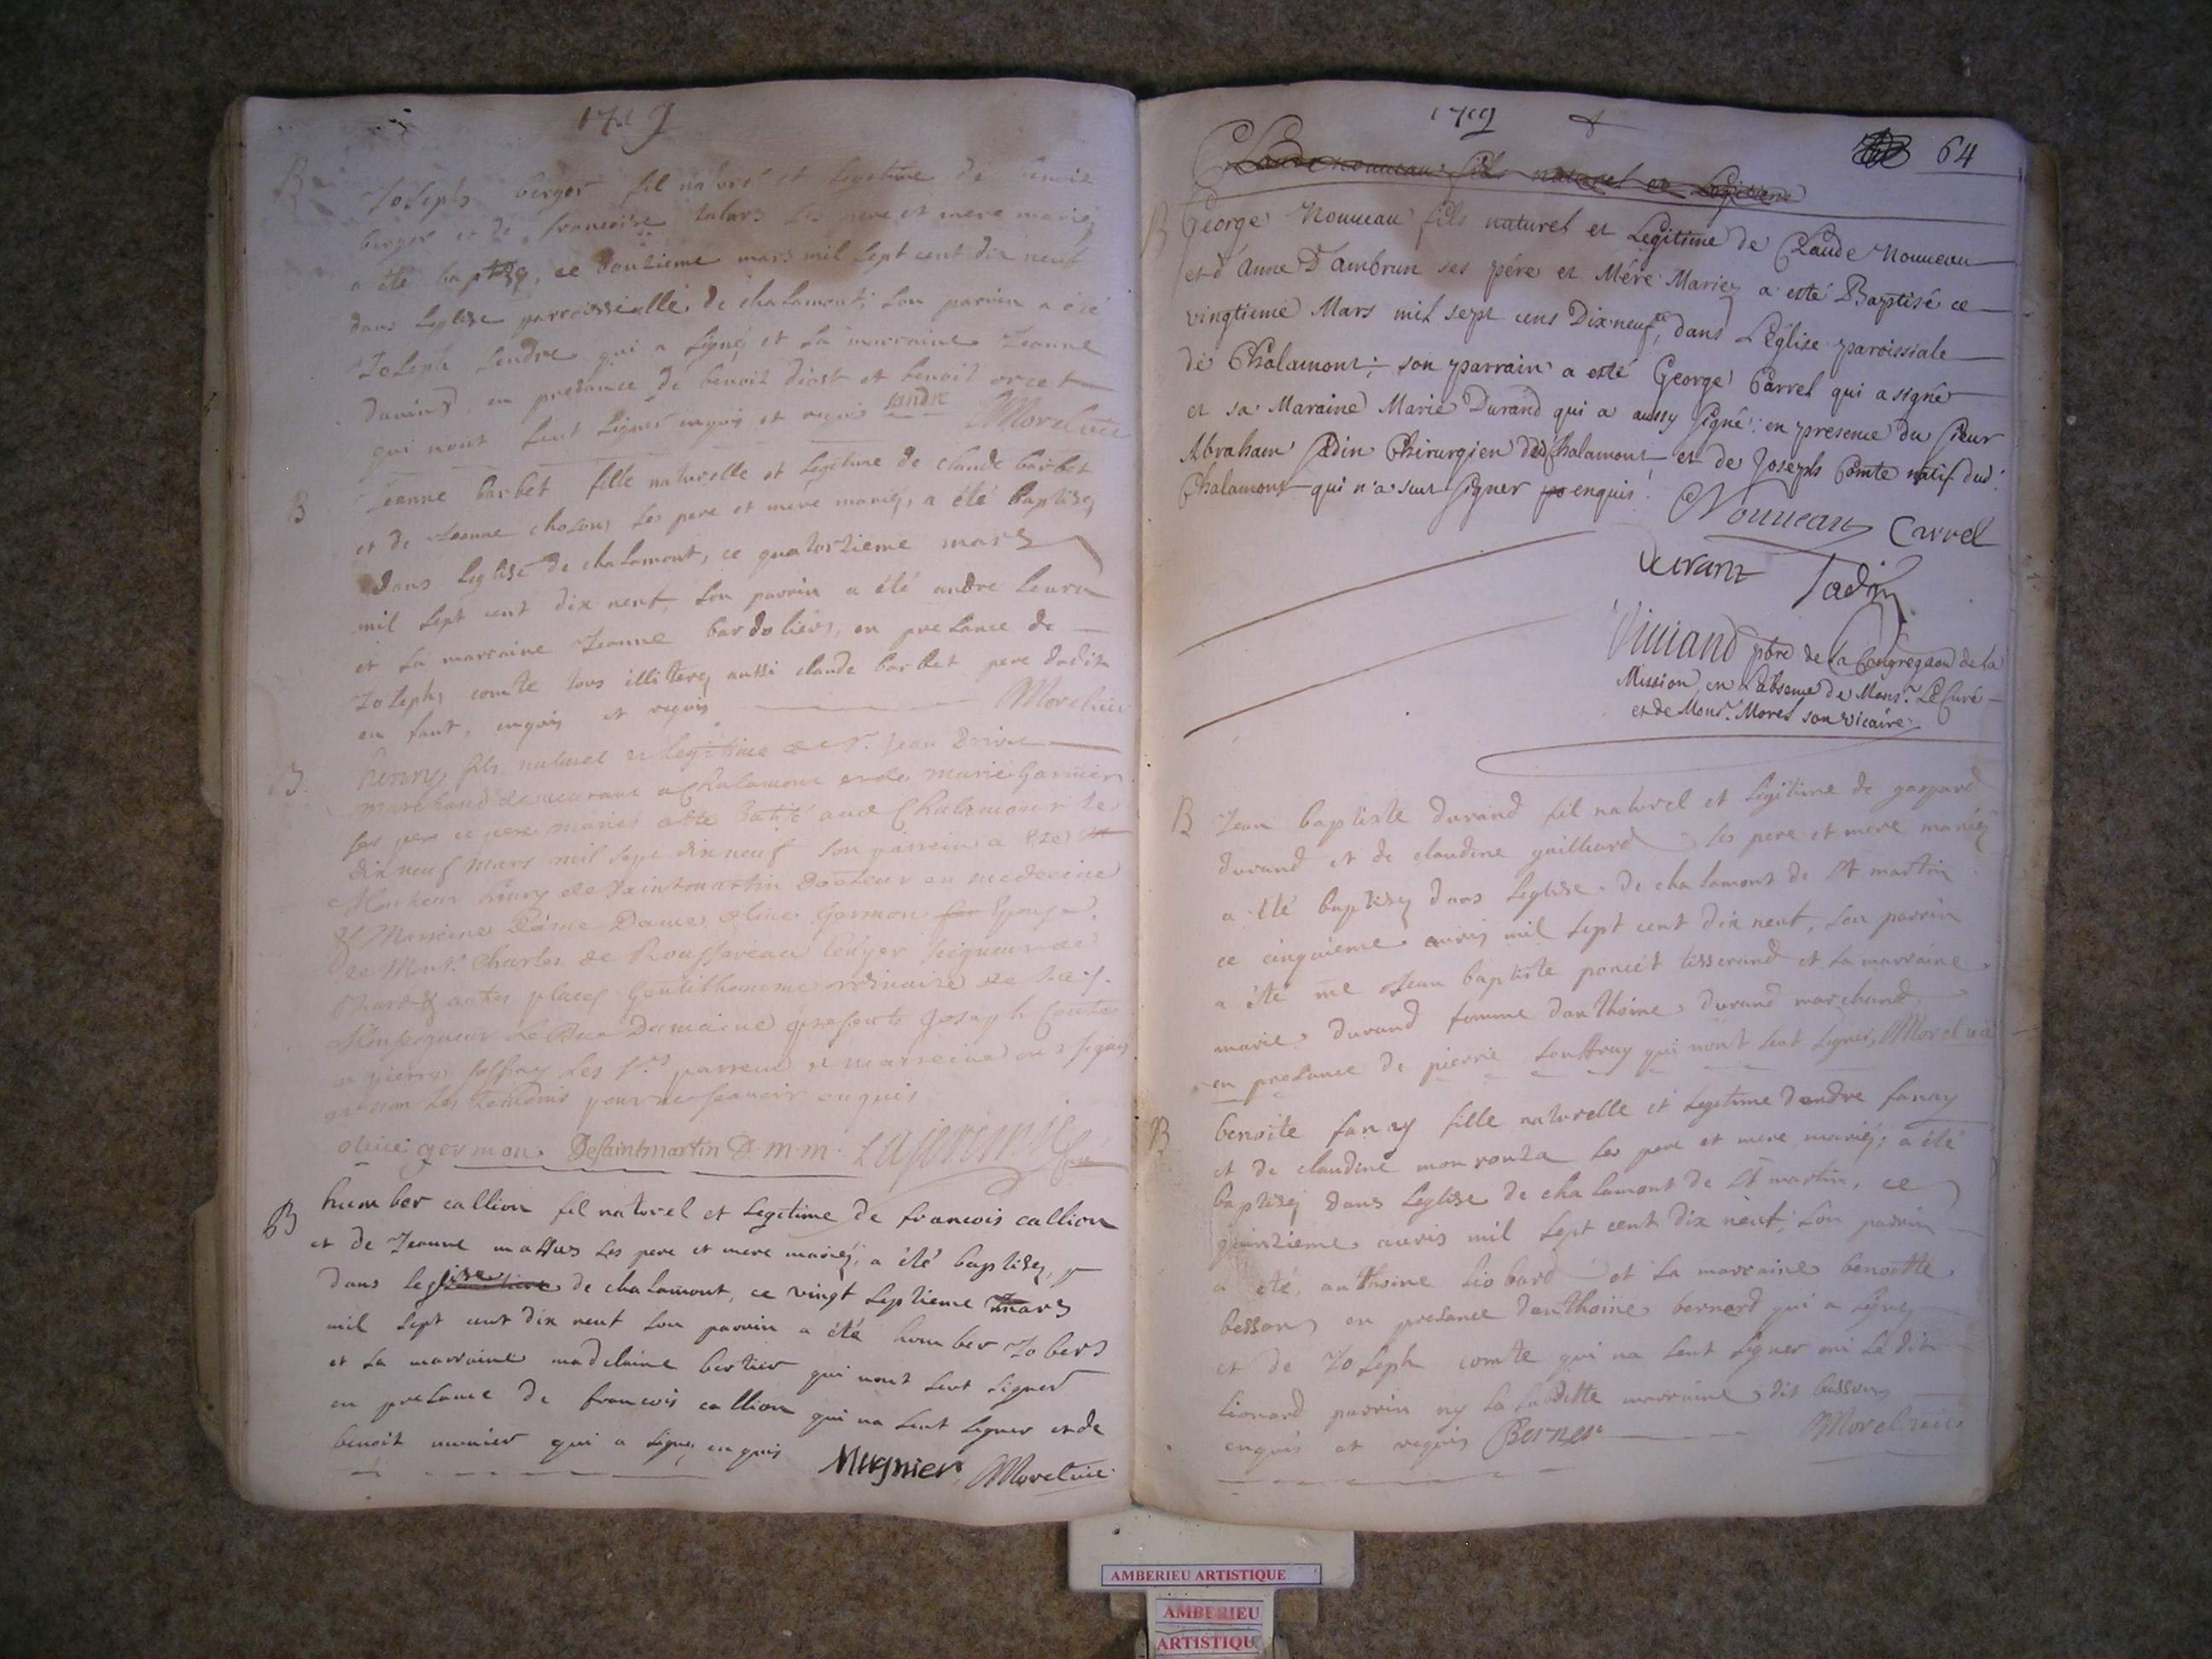 1719
B
Joseph berger fil naturel et legetime de benoit
berger et de francoise ses pere et mere mariez
a été baptisé, ce douzieme mars mil sept cent dix neuf
dans leglise parroissialle de chalamont; son parrin a été
Joseph sendre qui a signé et sa marraine Jeanne
en presance de benoit diost et benoit orcet
qui nont seut signer enquis et requis sandre Morel vic
B
Jeanne barbet fille naturelle et legitime de claude barbet
et de Jeanne choson, ses pere et mere mariez, a été baptisez
dans leglise de chalamont, ce quatorzieme mars
mil sept cent dix neuf, son parrin a été andre
et sa marraine Jeanne bardoliers, en presance de
Joseph comte tous illiterez aussi claude barbet pere dudit
en fant, enquis et requis Morel vic
B.
henry fils naturel et legitime de Sr. Jean
marchand demeurant a Chalamont et de marie Garnier
ses pere et mere mariés a été batisé aud Chalamont le
dix neuf mars mil sept dix neuf son parrein a été
Monsieur henry de Saintmartin Docteur en medecine
& Marreine Dame olive Germon Epouse
de Monr. Charles de Roussereau Ecuyer seigneur de
& autres places Gentilhomme ordinaire de S.A.S.
Monseigneur le Duc Dumaine presents Joseph Conte
et pierre joffray Les Srs parrein et marreine ont signé
et non les temoins pour ne scavoir enquis
olive germon Desaintmartin D. m. m. Curé
B
humber callion fil naturel et legetime de francois callion
et de Jeanne ses pere et mere mariez, a été baptisez,
dans leglise de chalamont, ce vingt septieme mars
mil sept cent dix neuf son parrin a été humber Jobert
et sa marraine madelaine bertier qui nont seut signer
en presance de francois callion qui na seut signer et de
benoit munier qui a signe, enquis Mugnier, Morel vic
1719 64
Claude nouueau fils naturel et Legitime
B
George Nouueau fils naturel et Legitime de Claude Nouueau
et d'Anne Dambrun ses pére et Mére Mariez a esté Baptisé ce
vingtieme Mars mil sept cens Dixneuf, dans L'Eglise paroissiale
de Chalamont; son parrain a esté George Carrel qui a signé
et sa Maraine Marie Durand qui a aussy signé: en presence du sieur
Abraham Jadin Chirurgien de Chalamont et de Joseph Comte natif dud.
Chalamont qui n'a seut signer enquis.
Nouueau Carrel
durant Jadin
Viuiand pbre de la Congregaon de la
Mission en L'absence de Monsr. Le Curé
et de Monsr. Morel son vicaire
B
Jean baptiste durand fil naturel et legitime de gaspard
durand et de claudine gailliard ses pere et mere mariez
a été baptisez dans leglise de chalamont de st martin
ce cinquieme auris mil sept cent dix neuf, son parrin
a été me Jean baptiste poncét tisserand et sa marraine
marie durand femme danthoine durand marchand
en presance de pierre qui nont seut signer, Morel vic
B
benoite fanry fille naturelle et legetime dandre fanry
et de claudine ses pere et mere mariéz; a été
baptisez dans leglise de chalamont de st martin, ce
quinzieme auris mil sept cent dix neuf; son parrin
a été, anthoine liobard et sa marraine benoitte
besson en presance danthoine bernard qui a signez
et de Joseph comte qui na seut signer ni ledit
lionard parrin ny la laditte marraine dit besson
enquis et requis Berner Morel vic
AMBERIEU ARTISTIQUE
AMBERIEU
ARTISTIQU